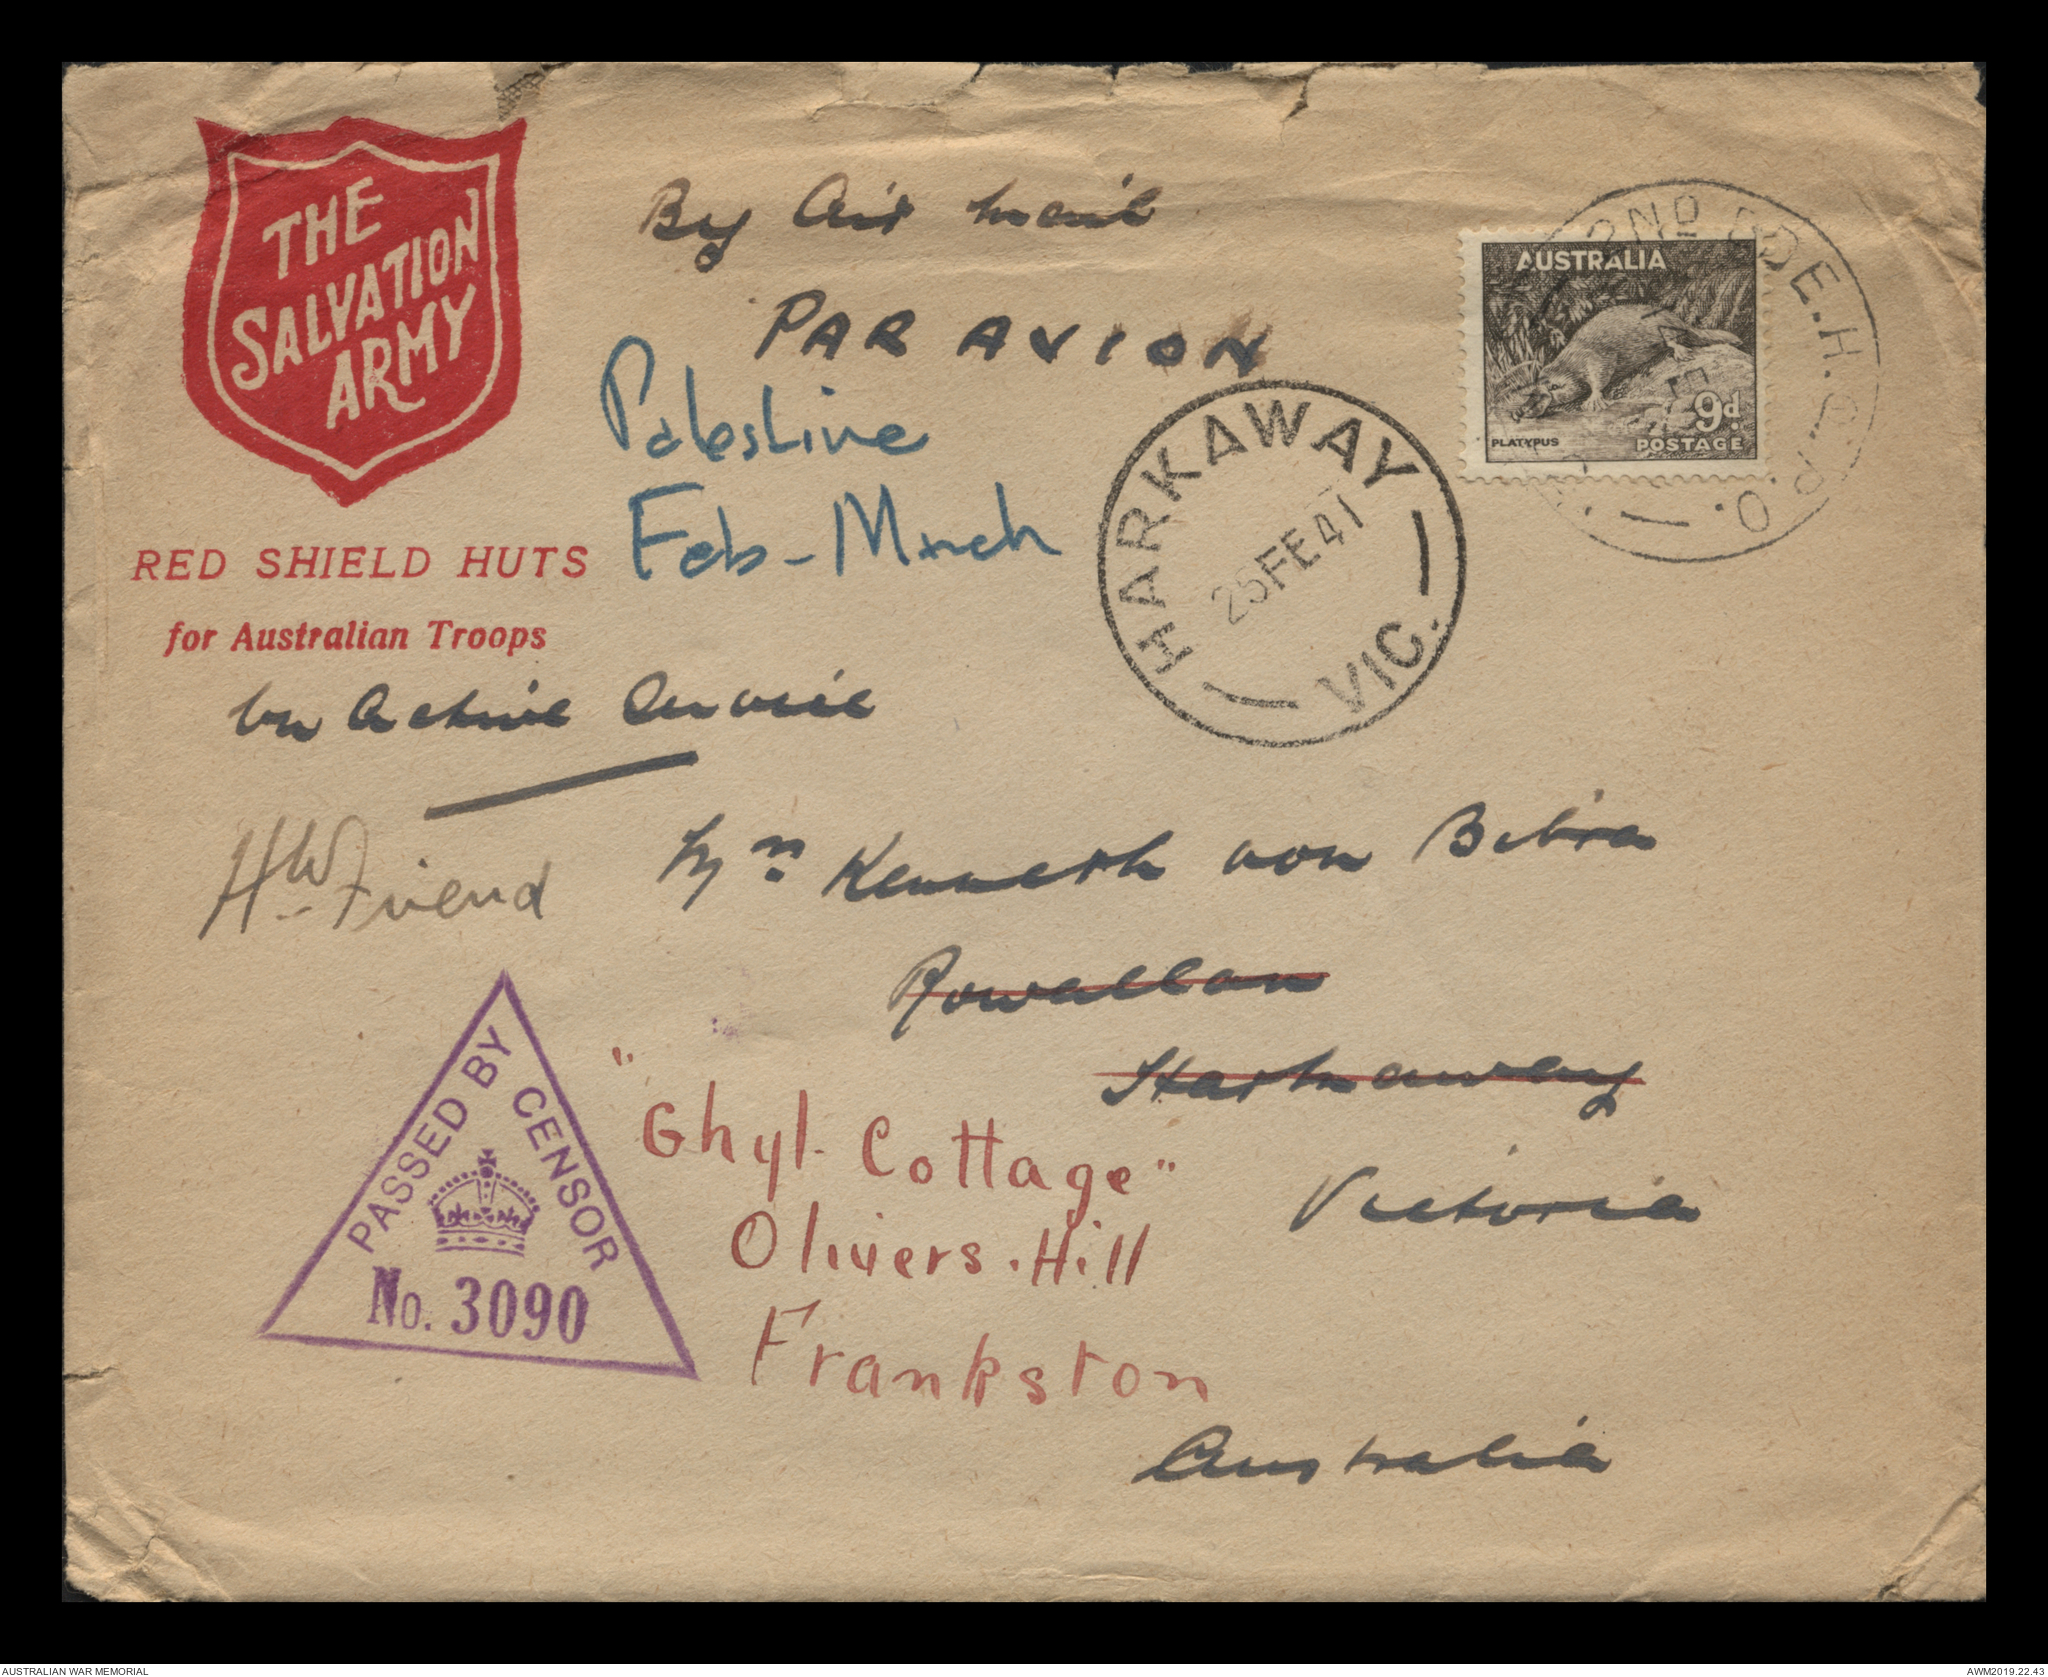 THE
SALVATION
ARMY
RED SHIELD HUTS
for Australian Troops
By Air mail
PAR AVION
Palestine
Feb - March
2ND BDE. H.Q. P.O.
AUSTRALIA
9d.
PLATYPUS
POSTAGE
HARKAWAY
25FE41
VIC.
On Active Service
HW Friend
Mrs Kenneth von Bibra
Rowallan
Harkaway
Victoria
"Ghyl- Cottage"
Olivers. Hill
Frankston
Australia
PASSED BY CENSOR
No. 3090
AUSTRALIAN WAR MEMORIAL
AWM2019.22.43